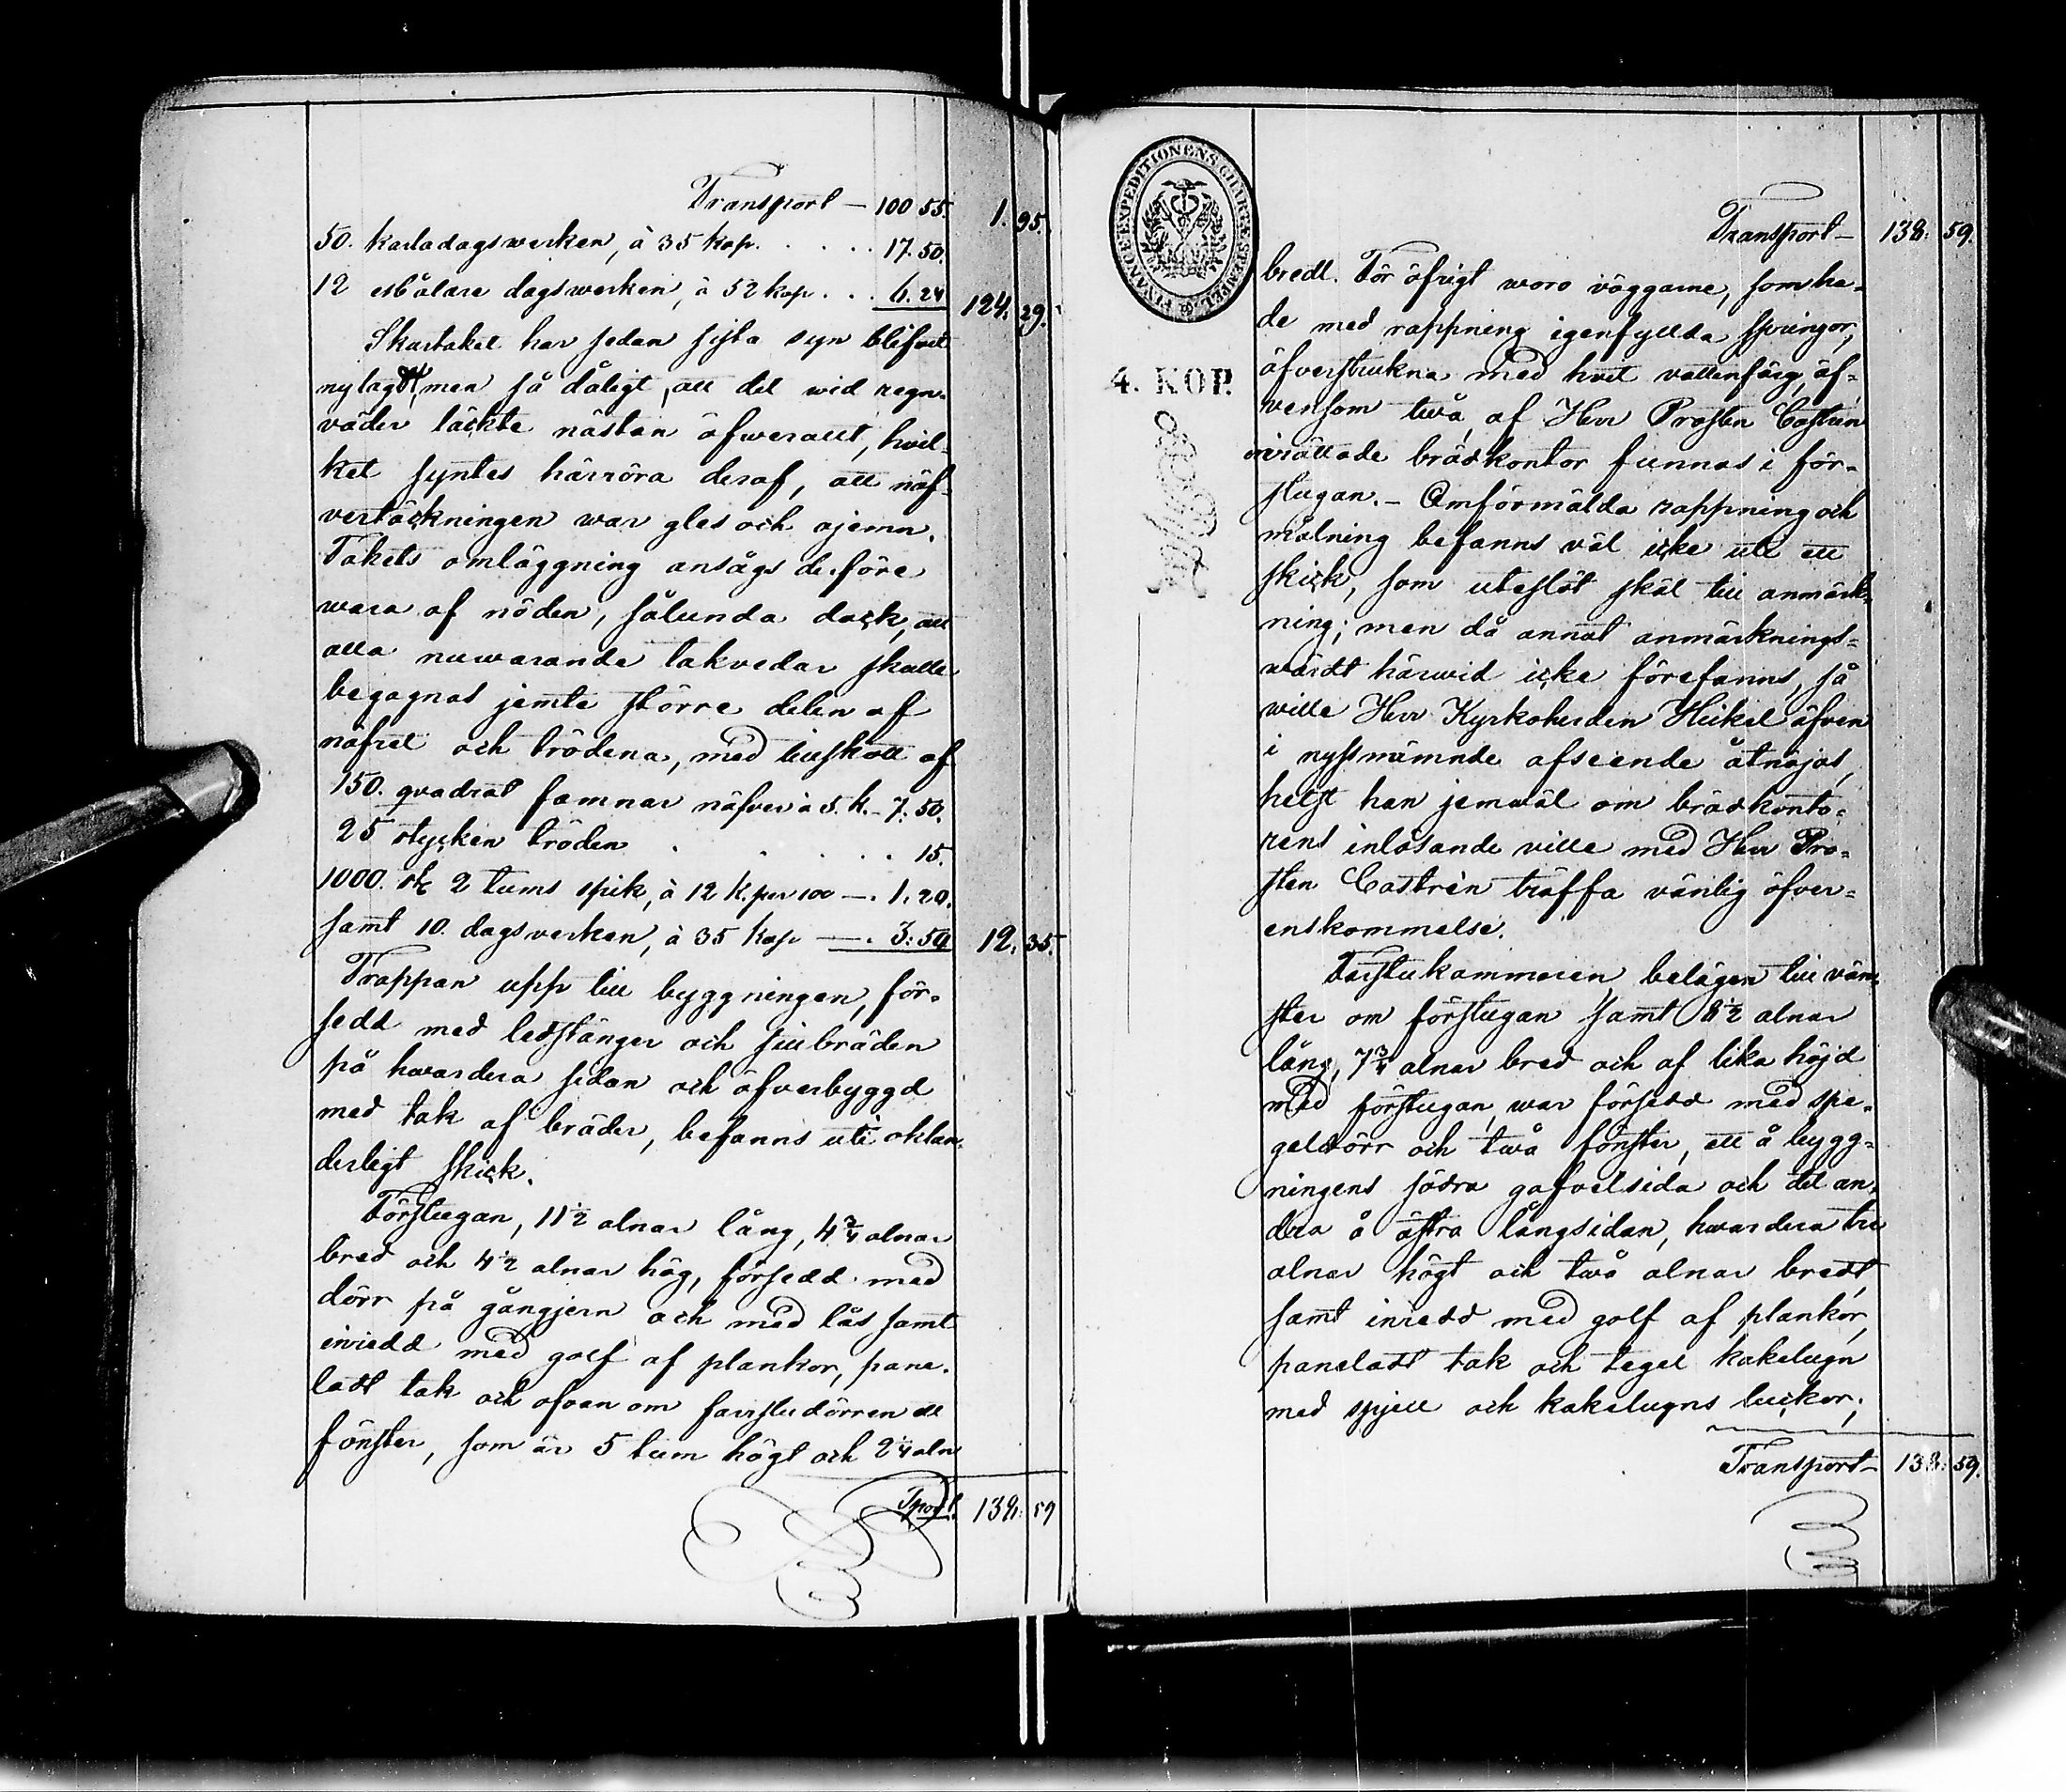 Transport — 100 55. 1. 95.
50. karladagswerken, à 35 kop. . . . . 17. 50.
12 dagswerken, à 52 kop . . . 6. 24 124. 29.
Skartaket har sedan sista syn blifvit
nylagdt, men så dåligt, att det wid regn-
väder läckte nästan öfwerallt, hvil-
ket syntes härröra deraf, att näf-
vertäckningen war gles och ojemn.
Takets omläggning ansågs derföre
wara af nöden, sålunda dock, att
alla nuwarande takvedar skulle
begagnas jemte större delen af
näfret och trödena, med tillskott af
150. qvadrat famnar näfver à 5. k. - 7. 50.
25 stycken tröden . . . . . 15.
1000. st 2 tums spik, à 12 k. per 100 — . 1. 20.
samt 10. dagsverken, à 35 kop — . 3: 50 12. 35.
Trappan upp till byggningen, för-
sedd med ledstänger och bräden
på hwardera sidan och öfverbyggd
med tak af bräder, befanns uti oklan-
derligt skick.
Förstugan, 11½ alnar lång, 4¾ alnar
bred och 4½ alnar hög, försedd med
dörr på gångjern och med lås samt
inredd med golf af plankor, pane-
ladt tak och ofvan om farstudörren ett
fönster, som är 5 tum högt och 2¼ aln
Tport. 138. 59
FINANCE EXPEDITIONENS CHARTÆ STEMPEL
4. KOP.
Transport — 138. 59.
bredt. För öfrigt woro väggarne, som ha-
de med rappning igenfyllda springor,
öfverstrukna med hvit vattenfärg, äf-
vensom två, af Herr Prosten Castrén
inrättade brädkontor funnos i för-
stugan. — Omförmälda rappning och
målning befanns väl icke uti ett
skick, som uteslöt skäl till anmärk-
ning; men då annat anmärknings-
värdt härwid icke förefanns, så
wille Herr Kyrkoherden Heikel äfven
i nyssnämnde afseende åtnöjas,
helst han jemwäl om brädkonto-
rens inlösande ville med Herr Pro-
sten Castrén träffa vänlig öfver-
enskommelse.
Farstukammaren, belägen till vän-
ster om förstugan samt 8½ alnar
lång, 7¾ alnar bred och af lika höjd
med förstugan, war försedd med spe-
geldörr och twå fönster, ett å bygg-
ningens södra gafvelsida och det an-
dra å östra långsidan, hwardera tre
alnar högt och twå alnar bredt,
samt inredd med golf af plankor,
paneladt tak och tegel kakelugn
med spjell och kakelugns luckor;
Transport — 138. 59.